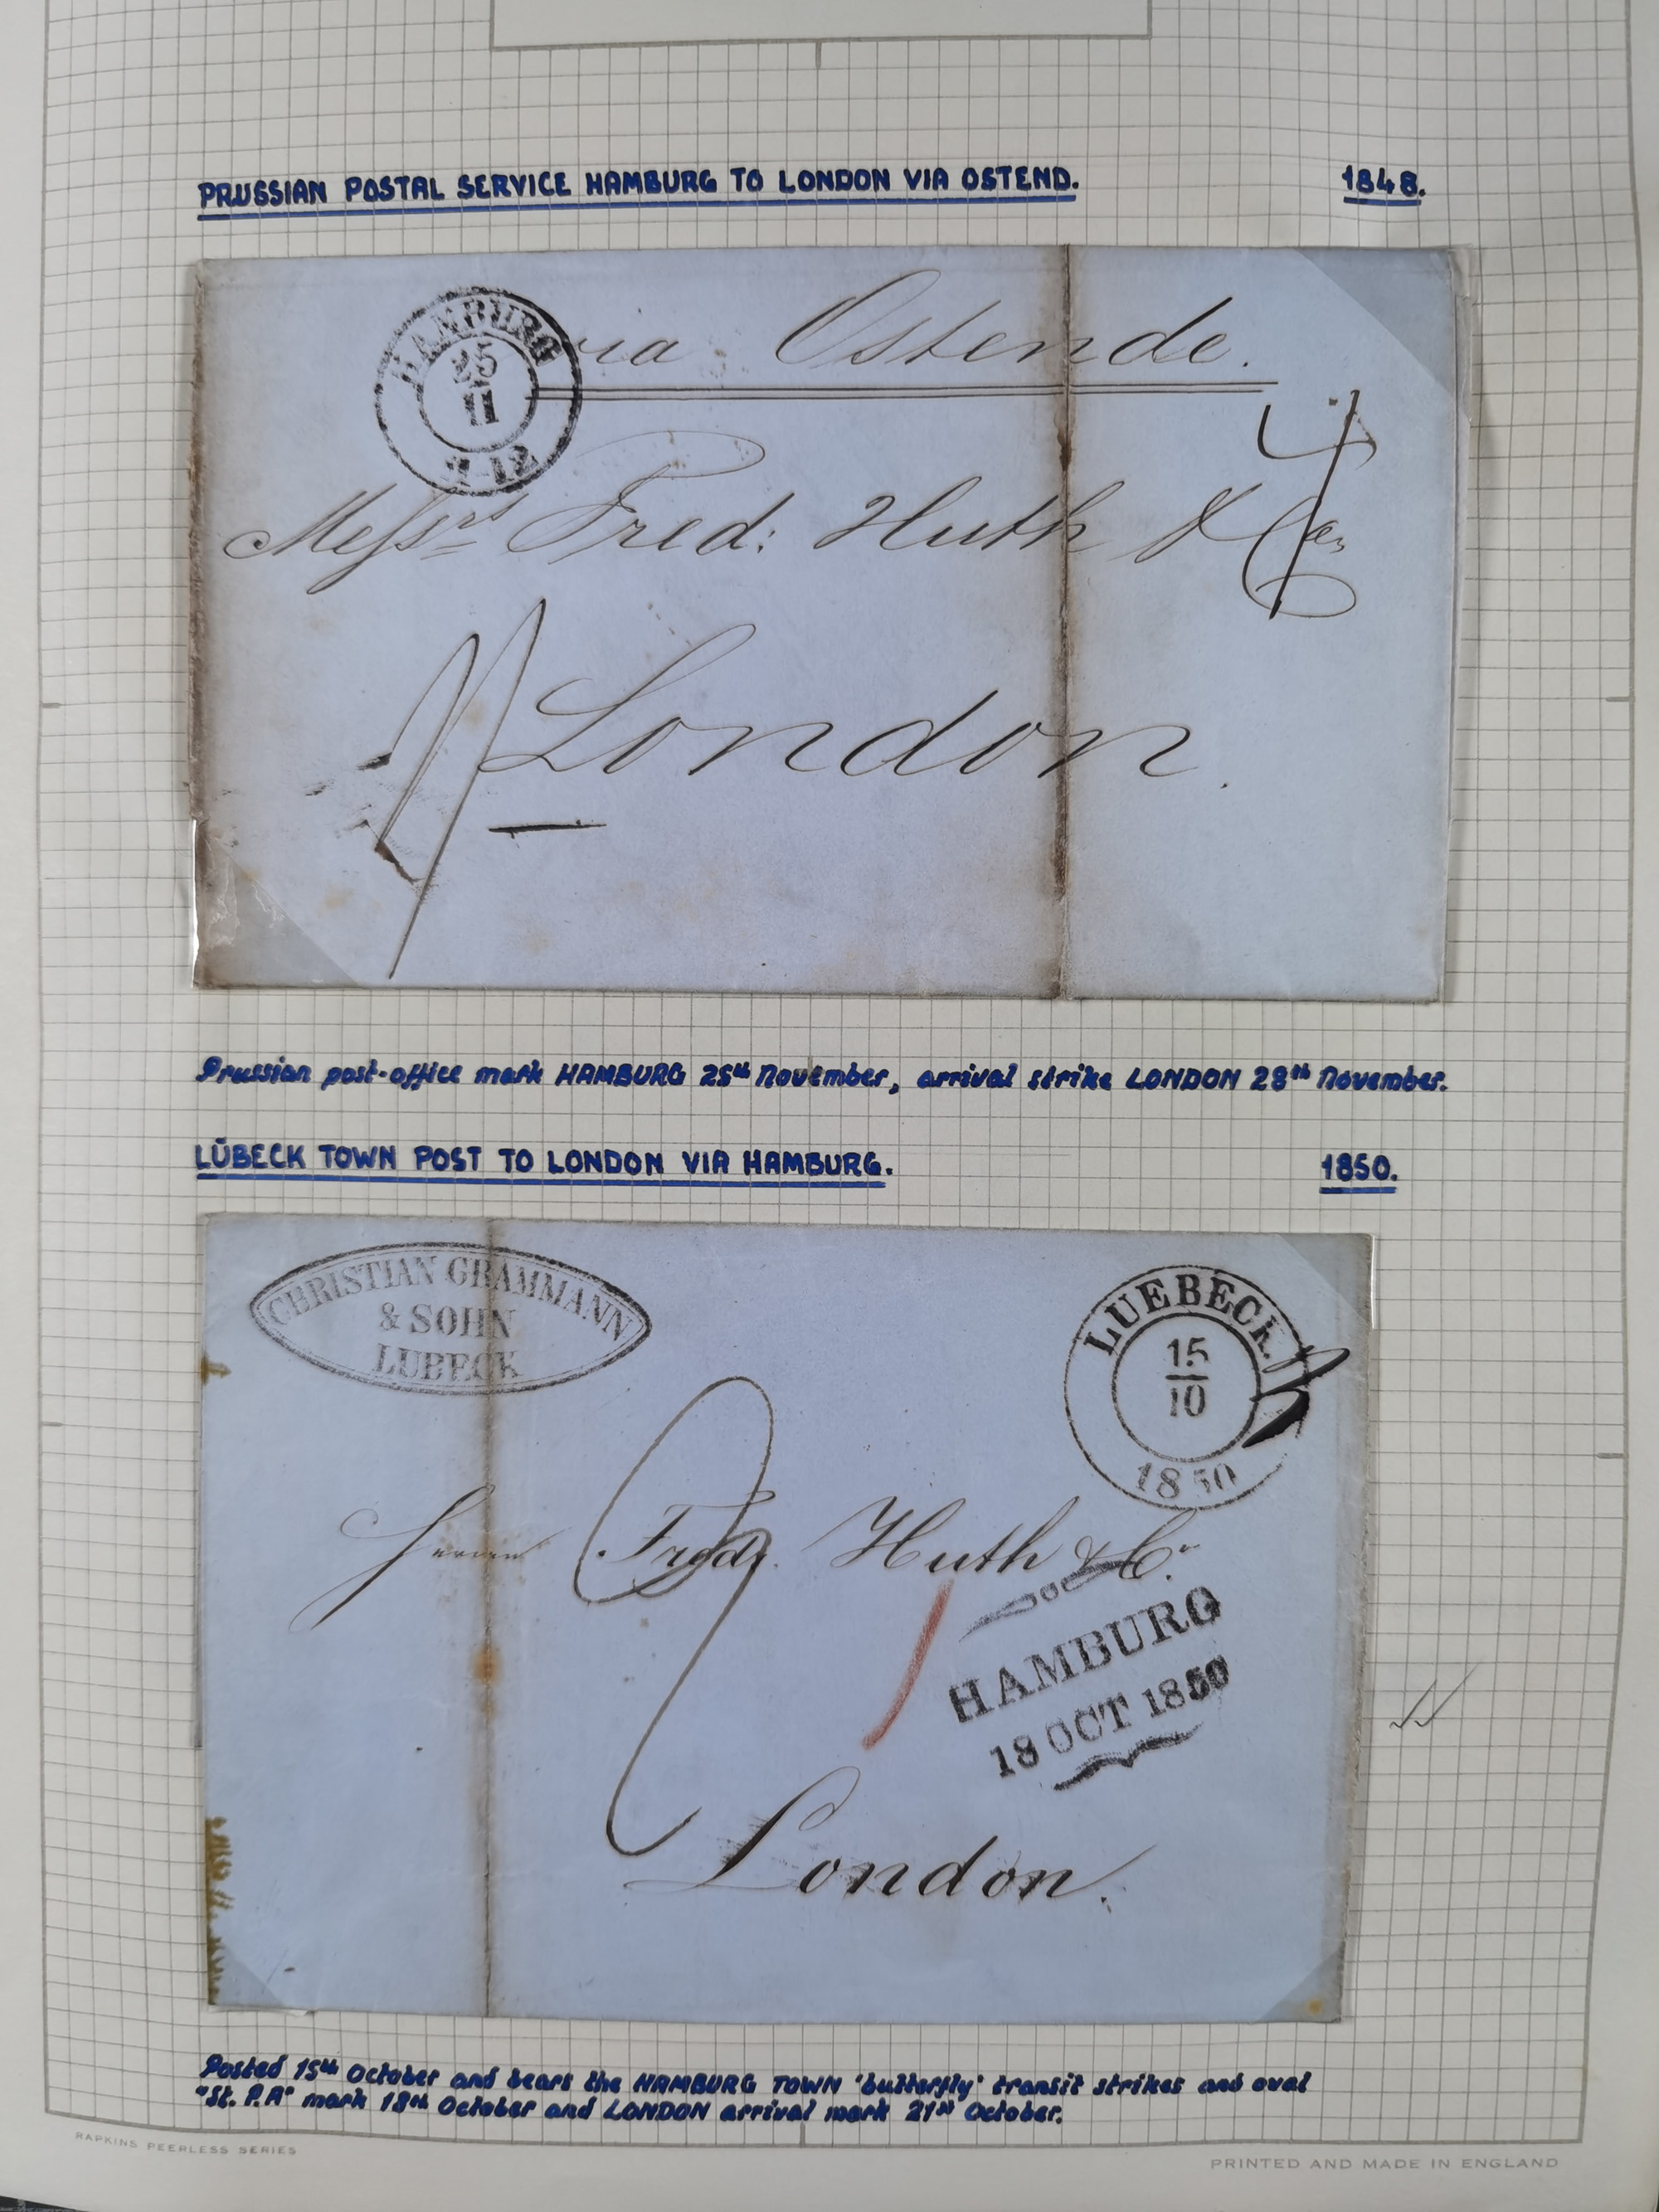 PRUSSIAN POSTAL SERVICE HAMBURG TO LONDON VIA OSTEND. 1848.
HAMBURG
25
11
via Ostende.
Messrs Fred: Huth & Co
London.
Prussian post-office mark HAMBURG 25th November, arrival strike LONDON 28th November.
LÜBECK TOWN POST TO LONDON VIA HAMBURG. 1850.
CHRISTIAN GRAMMANN
& SOHN
LUBECK
LUEBECK
15
10
1850
Herren Fredk. Huth & Co.
HAMBURG
18 OCT 1850
London.
Posted 15th October and bears the HAMBURG TOWN 'butterfly' transit strikes and oval
"St. P.A" mark 18th October and LONDON arrival mark 21st October.
RAPKINS PEERLESS SERIES
PRINTED AND MADE IN ENGLAND